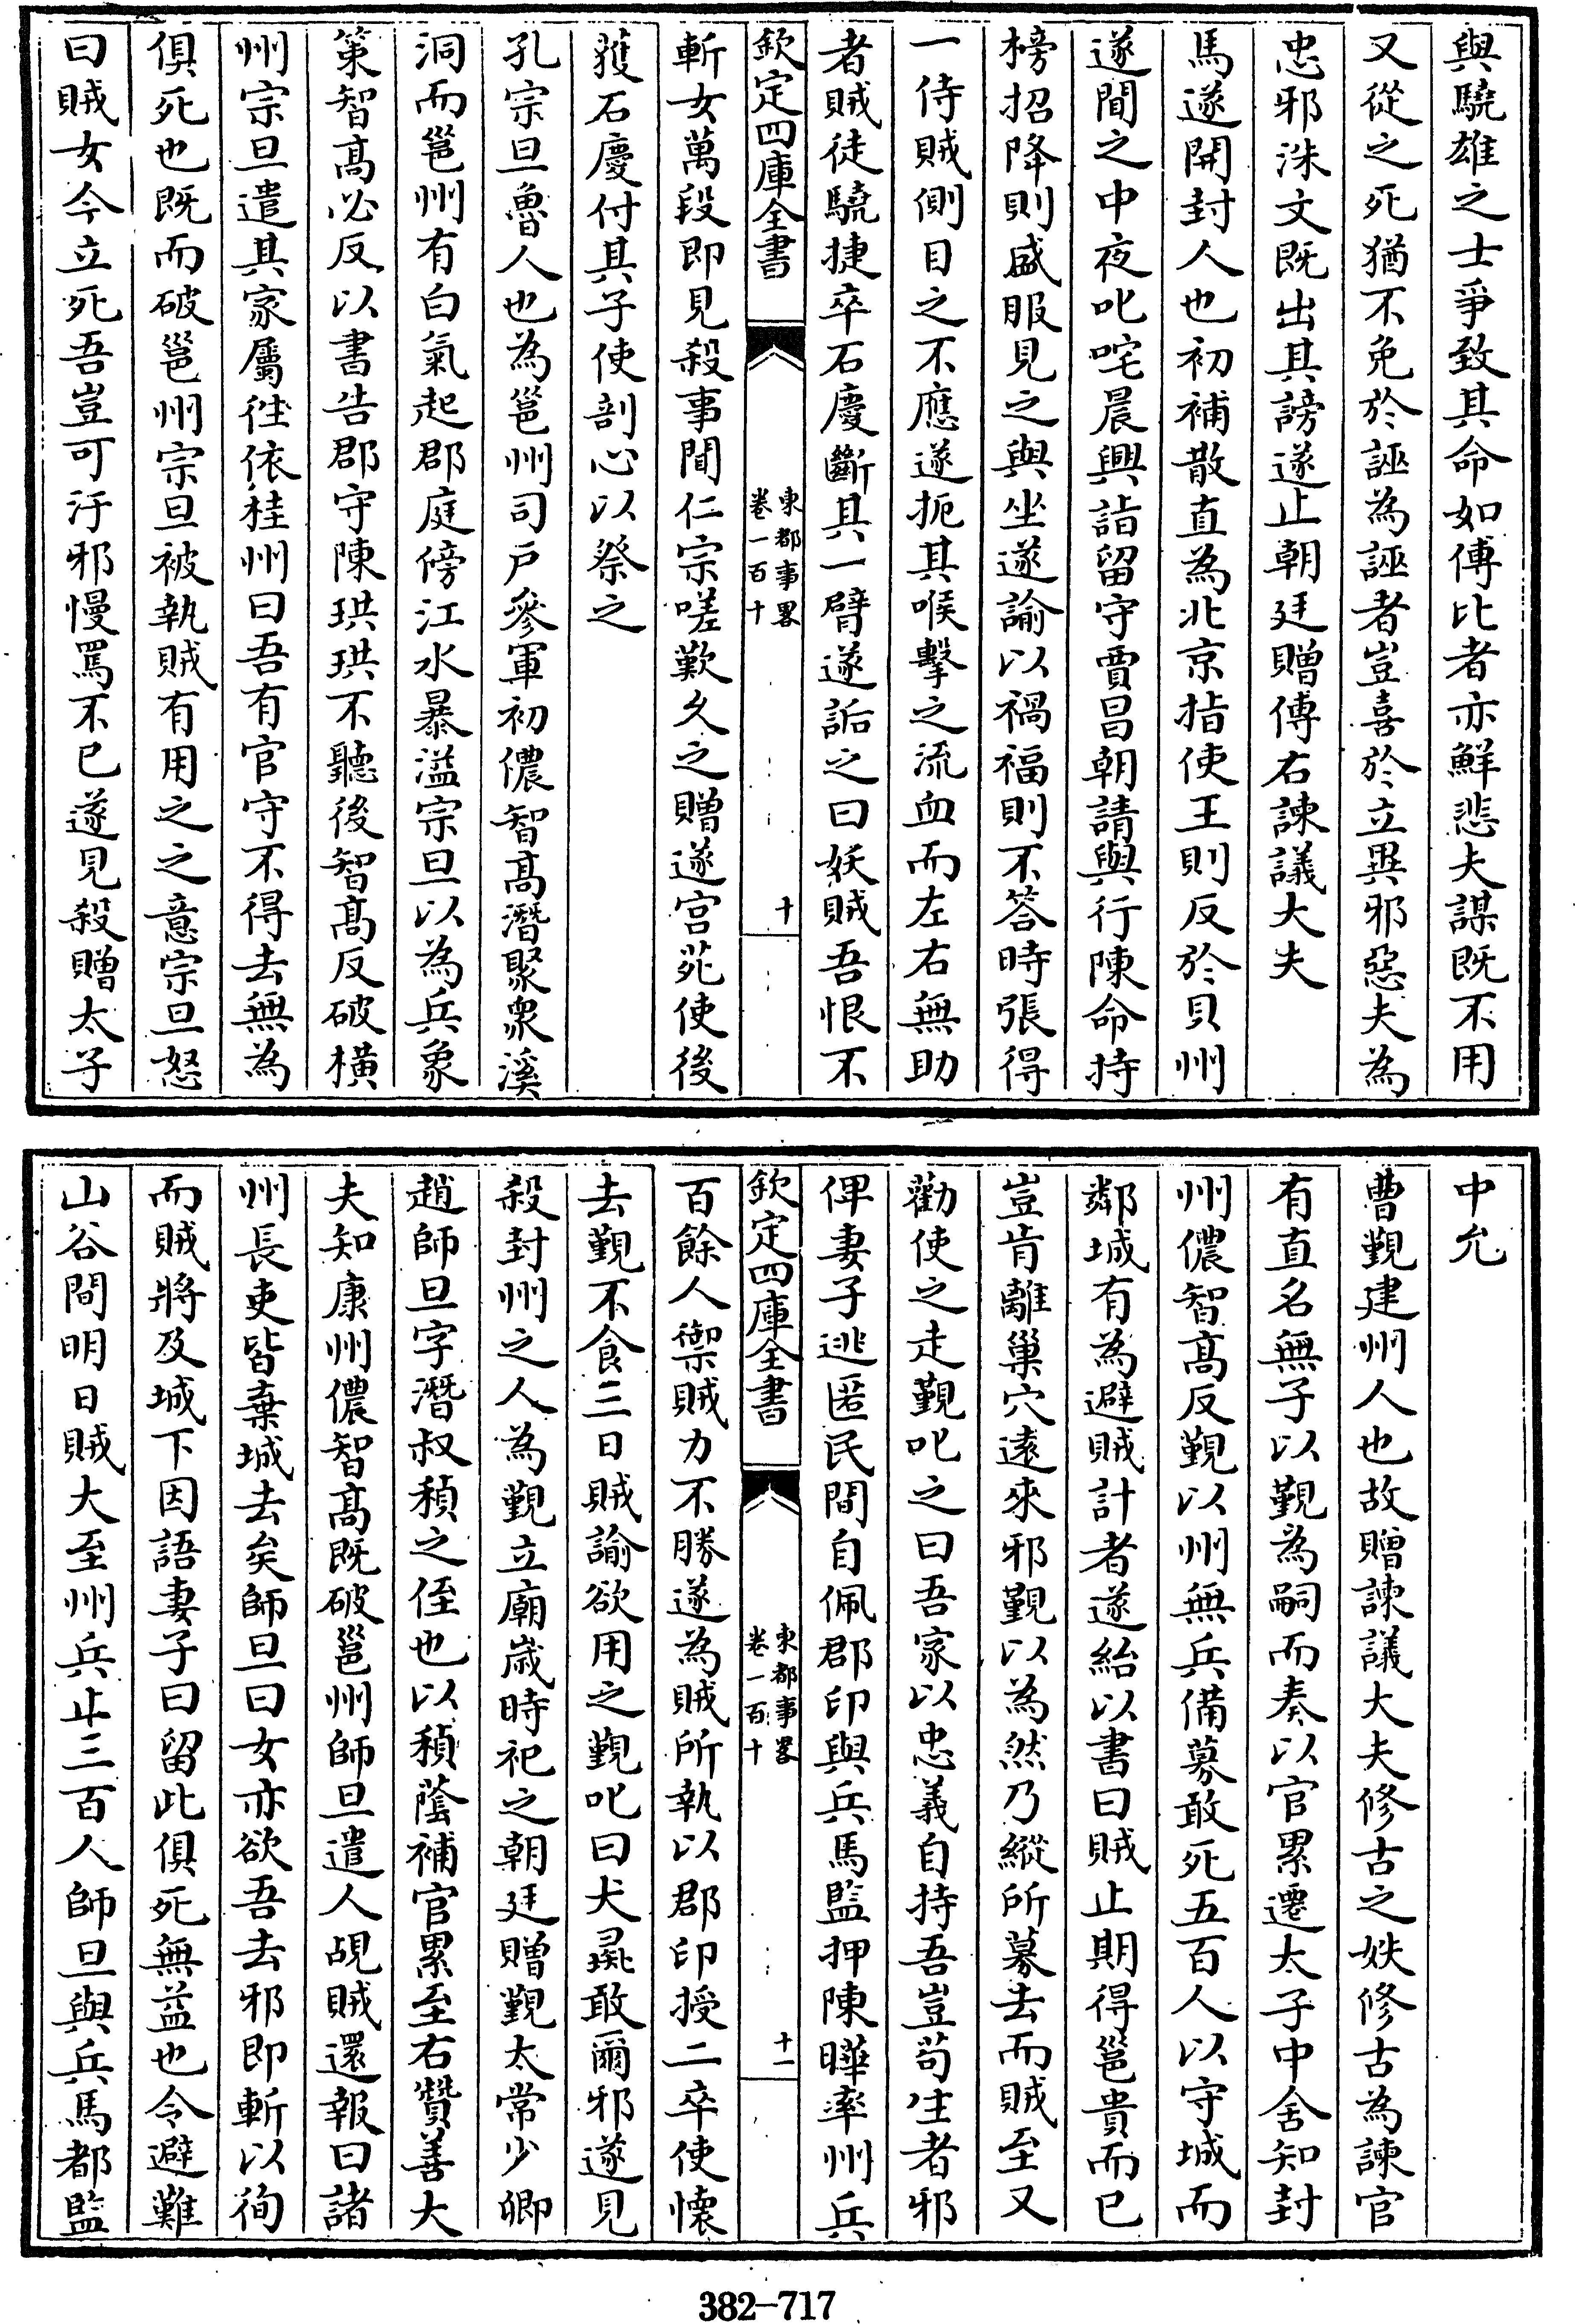 與驍雄之士爭致其命如傅比者亦鮮悲夫謀既不用
又從之死猶不免於誣為誣者豈喜於立異邪惡夫為
忠邪洙文既出其謗遂止朝廷贈傅右諫議大夫
馬遂開封人也初補散直為北京指使王則反於貝州
遂聞之中夜叱咤晨興詣留守賈昌朝請與行陳命持
榜招降則盛服見之與坐遂諭以禍福則不答時張得
一侍賊側目之不應遂扼其喉擊之流血而左右無助
者賊徒驍捷卒石慶斷其一臂遂詬之曰妖賊吾恨不
欽定四庫全書
東都事畧
卷一百十
十
斬女萬段即見殺事聞仁宗嗟歎久之贈遂宫苑使後
獲石慶付其子使剖心以祭之
孔宗旦魯人也為邕州司戶參軍初儂智高潛聚衆溪
洞而邕州有白氣起郡庭傍江水暴溢宗旦以為兵象
策智高必反以書告郡守陳珙珙不聽後智高反破橫
州宗旦遣其家屬徃依桂州曰吾有官守不得去無為
俱死也既而破邕州宗旦被執賊有用之之意宗旦怒
曰賊女今立死吾豈可汙邪慢罵不已遂見殺贈太子
中允
曹覲建州人也故贈諫議大夫修古之姪修古為諫官
有直名無子以覲為嗣而奏以官累遷太子中舍知封
州儂智高反覲以州無兵備募敢死五百人以守城而
鄰城有為避賊計者遂紿以書曰賊止期得邕貴而已
豈肯離巢穴遠來邪覲以為然乃縱所募去而賊至又
勸使之走覲叱之曰吾家以忠義自持吾豈苟生者邪
俾妻子逃匿民間自佩郡印與兵馬監押陳曄率州兵
欽定四庫全書
東都事畧
卷一百十
十一
百餘人禦賊力不勝遂為賊所執以郡印授二卒使懷
去覲不食三日賊諭欲用之覲叱曰犬彘敢爾邪遂見
殺封州之人為覲立廟歲時祀之朝廷贈覲太常少卿
趙師旦字潛叔稹之侄也以稹蔭補官累至右贊善大
夫知康州儂智高既破邕州師旦遣人覘賊還報曰諸
州長吏皆棄城去矣師旦曰女亦欲吾去邪即斬以徇
而賊將及城下因語妻子曰留此俱死無益也令避難
山谷間明日賊大至州兵止三百人師旦與兵馬都監
382-717